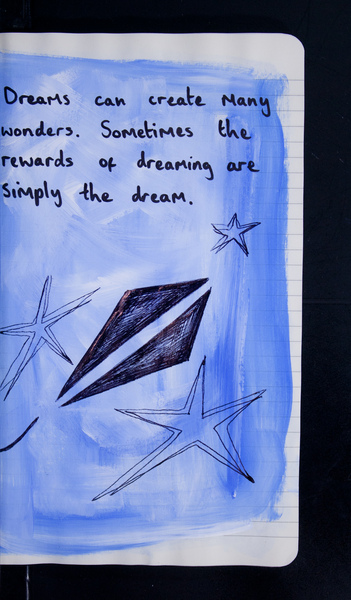 Dreams can create many
wonders. Sometimes the
rewards of dreaming are
simply the dream.